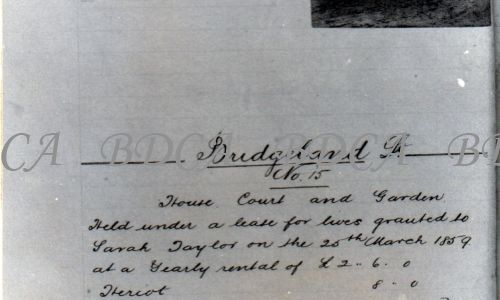 Bridgeland St
No. 15
House Court and Garden
Held under a lease for lives granted to
Sarah Taylor on the 25th March 1859
at a Yearly rental of £ 2 .. 6 . 0
Heriot 8 . 0
CA BDCA BDCA BD